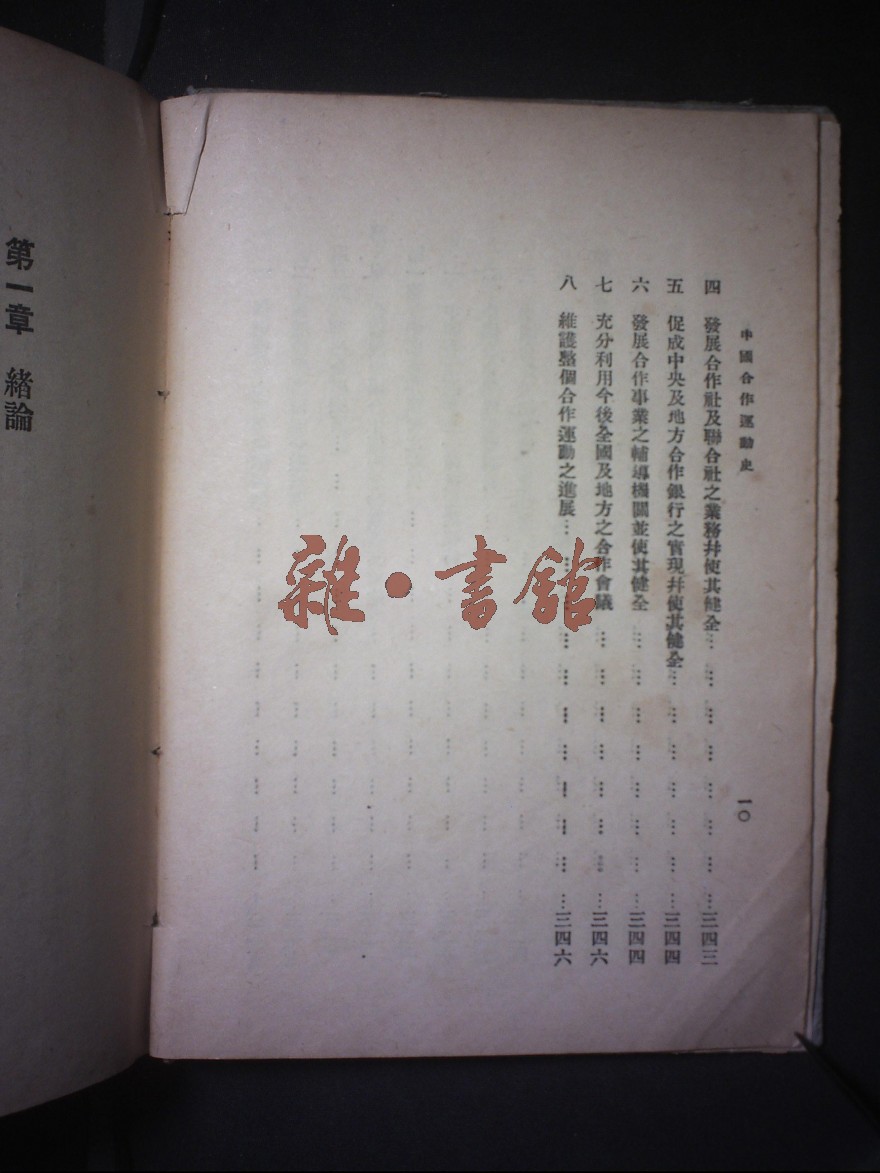 中國合作運動史
一〇
四 發展合作社及聯合社之業務幷使其健全……三四三
五 促成中央及地方合作銀行之實現幷使其健全……三四四
六 發展合作事業之輔導機關並使其健全……三四四
七 充分利用今後全國及地方之合作會議……三四六
八 維護整個合作運動之進展……三四六
第一章 緒論
雜·書館